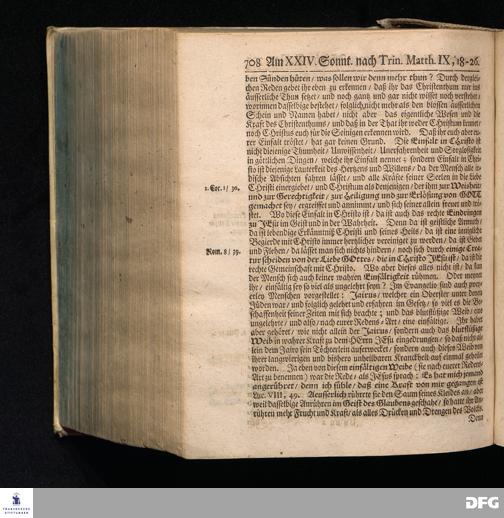 708 Am XXIV. Sonnt. nach Trin. Matth. IX, 18-26.
ben Sünden hüten / was sollen wir denn mehr thun? Durch derglei-
chen Reden gebet ihr eben zu erkennen / daß ihr das Christenthum nur ins
äusserliche Thun setzet / und noch gantz und gar nicht wisset noch verstehet /
worinnen dasselbige bestehet / folglich nicht mehr als den blossen äusserlichen
Schein und Namen habet / nicht aber das eigentliche Wesen und die
Kraft des Christenthums / und daß in der That ihr weder Christum kennet /
noch Christus euch für die Seinigen erkennen wird. Daß ihr euch aber eu-
rer Einfalt tröstet / hat gar keinen Grund. Die Einfalt in Christo ist
nicht diejenige Thumheit / Unwissenheit / Unerfahrenheit und Sorglosigkeit
in göttlichen Dingen / welche ihr Einfalt nennet; sondern Einfalt in Chri-
sto ist diejenige Lauterkeit des Hertzens und Willens / da der Mensch alle ir-
dische Absichten fahren lässet / und alle Kräfte seiner Seelen in die Liebe
1. Cor. 1/ 30. Christi einergiebet / und Christum als denjenigen / der ihm zur Weisheit
und zur Gerechtigkeit / zur Heiligung und zur Erlösung von GOTT
gemachet sey / ergreiffet und annimmt / und sich seiner allein freuet und trö-
stet. Wo diese Einfalt in Christo ist / da ist auch das rechte Eindringen
zu JEsu im Geist und in der Wahrheit. Denn da ist geistliche Armuth /
da ist lebendige Erkänntniß Christi und seines Heils / da ist eine innigliche
Begierde mit Christo immer hertzlicher vereiniget zu werden / da ist Geist
und Flehen / da lässet man sich nichts hindern / noch sich durch einige Crea-
Rom. 8/ 39. tur scheiden von der Liebe GOttes / die in Christo JEsu ist / da ist die
rechte Gemeinschaft mit Christo. Wo aber dieses alles nicht ist / da kan
der Mensch sich auch keiner wahren Einfältigkeit rühmen. Oder meynet
ihr / einfältig sey so viel als ungelehrt seyn? Im Evangelio sind auch zwey-
erley Menschen vorgestellet: Jairus / welcher ein Oberster unter denen
Jüden war / und folglich gelehrt und erfahren im Gesetz / so viel es die Be-
schaffenheit seiner Zeiten mit sich brachte; und das blutflüßige Weib / eine
ungelehrte / und also / nach eurer Redens-Art / eine einfältige. Ihr habet
aber gehöret / wie nicht allein der Jairus / sondern auch das blutflüßige
Weib in wahrer Kraft zu dem HErrn JEsu eingedrungen / so daß nicht al-
lein dem Jairo sein Töchterlein auferwecket / sondern auch dieses Weib von
ihrer langwierigen und bishero unheilbaren Kranckheit auf einmal geheilet
worden. Ja eben von diesem einfältigen Weibe (sie nach eurer Redens-
Art zu benennen) war die Rede / als JEsus sprach: Es hat mich jemand
angerühret / denn ich fühle / daß eine Kraft von mir gegangen ist
Luc. VIII, 49. Aeusserlich rührete sie den Saum seines Kleides an / aber
weil dasselbige Anrühren im Geist des Glaubens geschahe / so hatte ihr An-
rühren mehr Frucht und Kraft / als alles Drücken und Drengen des Volcks.
Denn
FRANCKESCHE
STIFTUNGEN
DFG